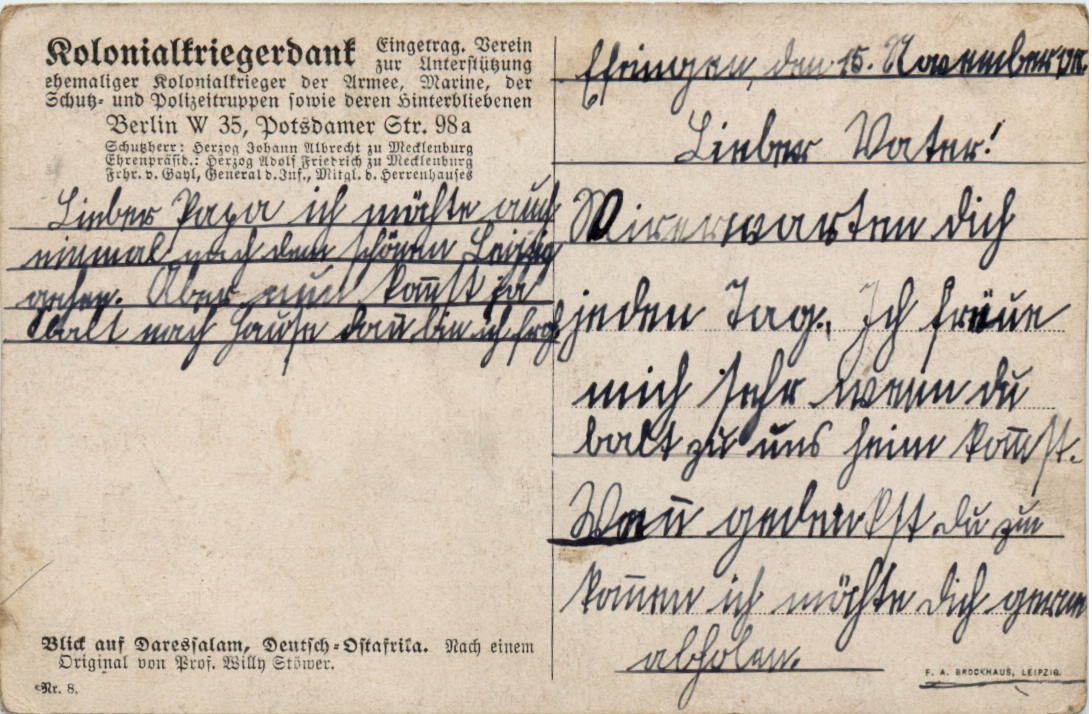 Kolonialkriegerdank Eingetrag. Verein
zur Unterstützung
ehemaliger Kolonialkrieger der Armee, Marine, der
Schutz- und Polizeitruppen sowie deren Hinterbliebenen
Berlin W 35, Potsdamer Str. 98a
Schutzherr: Herzog Johann Albrecht zu Mecklenburg
Ehrenpräsid.: Herzog Adolf Friedrich zu Mecklenburg
Frhr. v. Gayl, General d. Inf., Mitgl. d. Herrenhauses
Lieber Papa ich möchte auch
einmal nach dem schönen Leipzig
gehen. Aber nun kom̅st ja
balt nach Hause dan̅ bin ich froh
Blick auf Daressalam, Deutsch-Ostafrika. Nach einem
Original von Prof. Willy Stöwer.
Nr. 8.
Efringen, den 15. November
Lieber Vater!
Wir erwarten dich
jeden Tag. Ich freue
mich sehr wenn du
balt zu uns heim kom̅st.
Wan̅ gedenkst du zu
kom̅en ich möchte dich gerne
abholen.
F. A. BROCKHAUS, LEIPZIG.